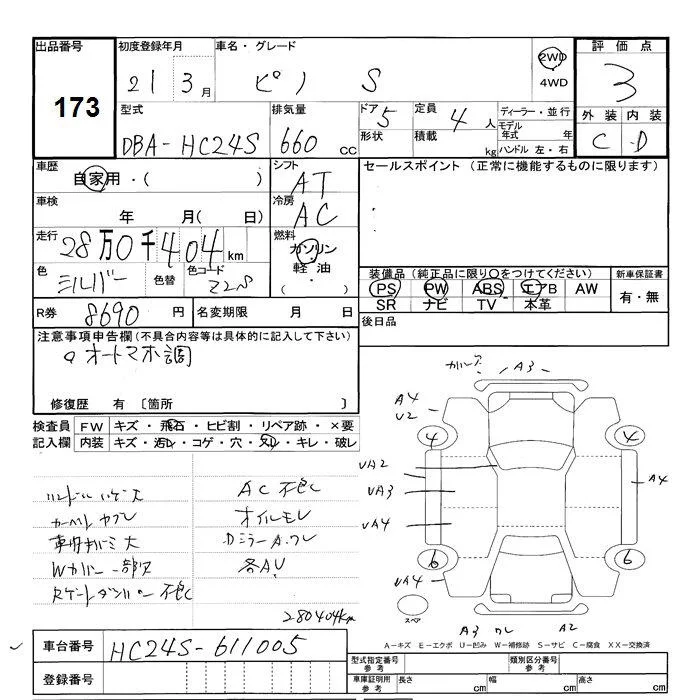 出品番号
173
初度登録年月
21 3月
車名・グレード
ピノ S
2WD
4WD
評価点
3
外装 内装
C D
型式
DBA-HC24S
排気量
660 cc
ドア 5
形状
定員 4人
積載 kg
ディーラー・並行
モデル年式 年
ハンドル 左・右
車歴
自家用・( )
シフト
AT
セールスポイント (正常に機能するものに限ります)
車検
年 月( 日)
冷房
AC
走行
28万0千404km
燃料
ガソリン
軽油
( ・ )
色
シルバー
色替
色コード
Z2S
装備品(純正品に限り○をつけてください)
PS PW ABS エアB AW
SR ナビ TV 本革
新車保証書
有・無
R券 8690円
名変期限 月 日
後日品
注意事項申告欄(不具合内容等は具体的に記入して下さい)
オートマ不調
修復歴 有〔箇所 〕
検査員記入欄
FW キズ・飛石・ヒビ割・リペア跡・×要
内装 キズ・汚レ・コゲ・穴・スレ・キレ・破レ
AC不良
オイルモレ
Wカバー一部欠
各AU
280404km
車台番号 HC24S-611005
登録番号
A3
A4
U2
4 4
UA2
UA3
UA4
A4
6 6
UA4
スペア
A3 ワレ A2
A-キズ E-エクボ U-凹み W-補修跡 S-サビ C-腐食 XX-交換済
型式指定番号 参考
類別区分番号 参考
車庫証明用 参考
長さ cm 幅 cm 高さ cm